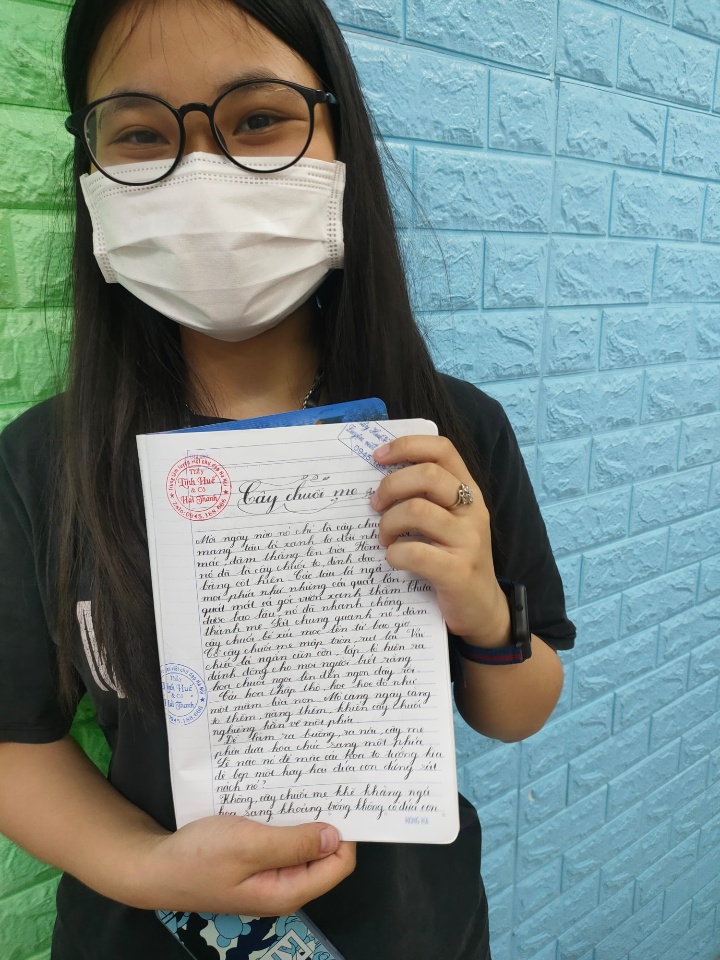 Trung tâm luyện viết chữ đẹp Hà Nội
Thầy
Tính Huế
& Cô
Hải Thanh
Zalo: 0945.168.886
Cây chuối mẹ
Mới ngày nào nó chỉ là cây
mang tàu lá xanh lơ dài như
mác, đâm thẳng lên trời. Hôm
nó đã là cây chuối to, đĩnh đạc,
bằng cột hiên. Các tàu lá ngả ra
mọi phía như những cái quạt lớn,
quạt mát cả góc vườn xanh thẫm. Chưa
được bao lâu, nó đã nhanh chóng
thành mẹ. Sát chung quanh nó, dăm
cây chuối bé xíu mọc lên từ bao giờ.
Cổ cây chuối mẹ mập tròn, rụt lại. Vài
chiếc lá ngắn cũn cỡn, lấp ló hiện ra
đánh động cho mọi người biết rằng
hoa chuối ngoi lên đến ngọn đấy rồi.
Cái hoa thập thò, hoe hoe đỏ như
một mầm lửa non. Nó càng ngày càng
to thêm, nặng thêm, khiến cây chuối
nghiêng hẳn về một phía.
Để làm ra buồng, ra nải, cây mẹ
phải đưa hoa chúc sang một phía.
Lẽ nào nó để mặc cái hoa to tướng kia
đè giập một hay hai đứa con đứng sát
nách nó?
Không, cây chuối mẹ khẽ khàng ngả
hoa sang khoảng trống không có đứa con
Thầy
Tính Huế
& Cô
Hải Thanh
HỒNG HÀ